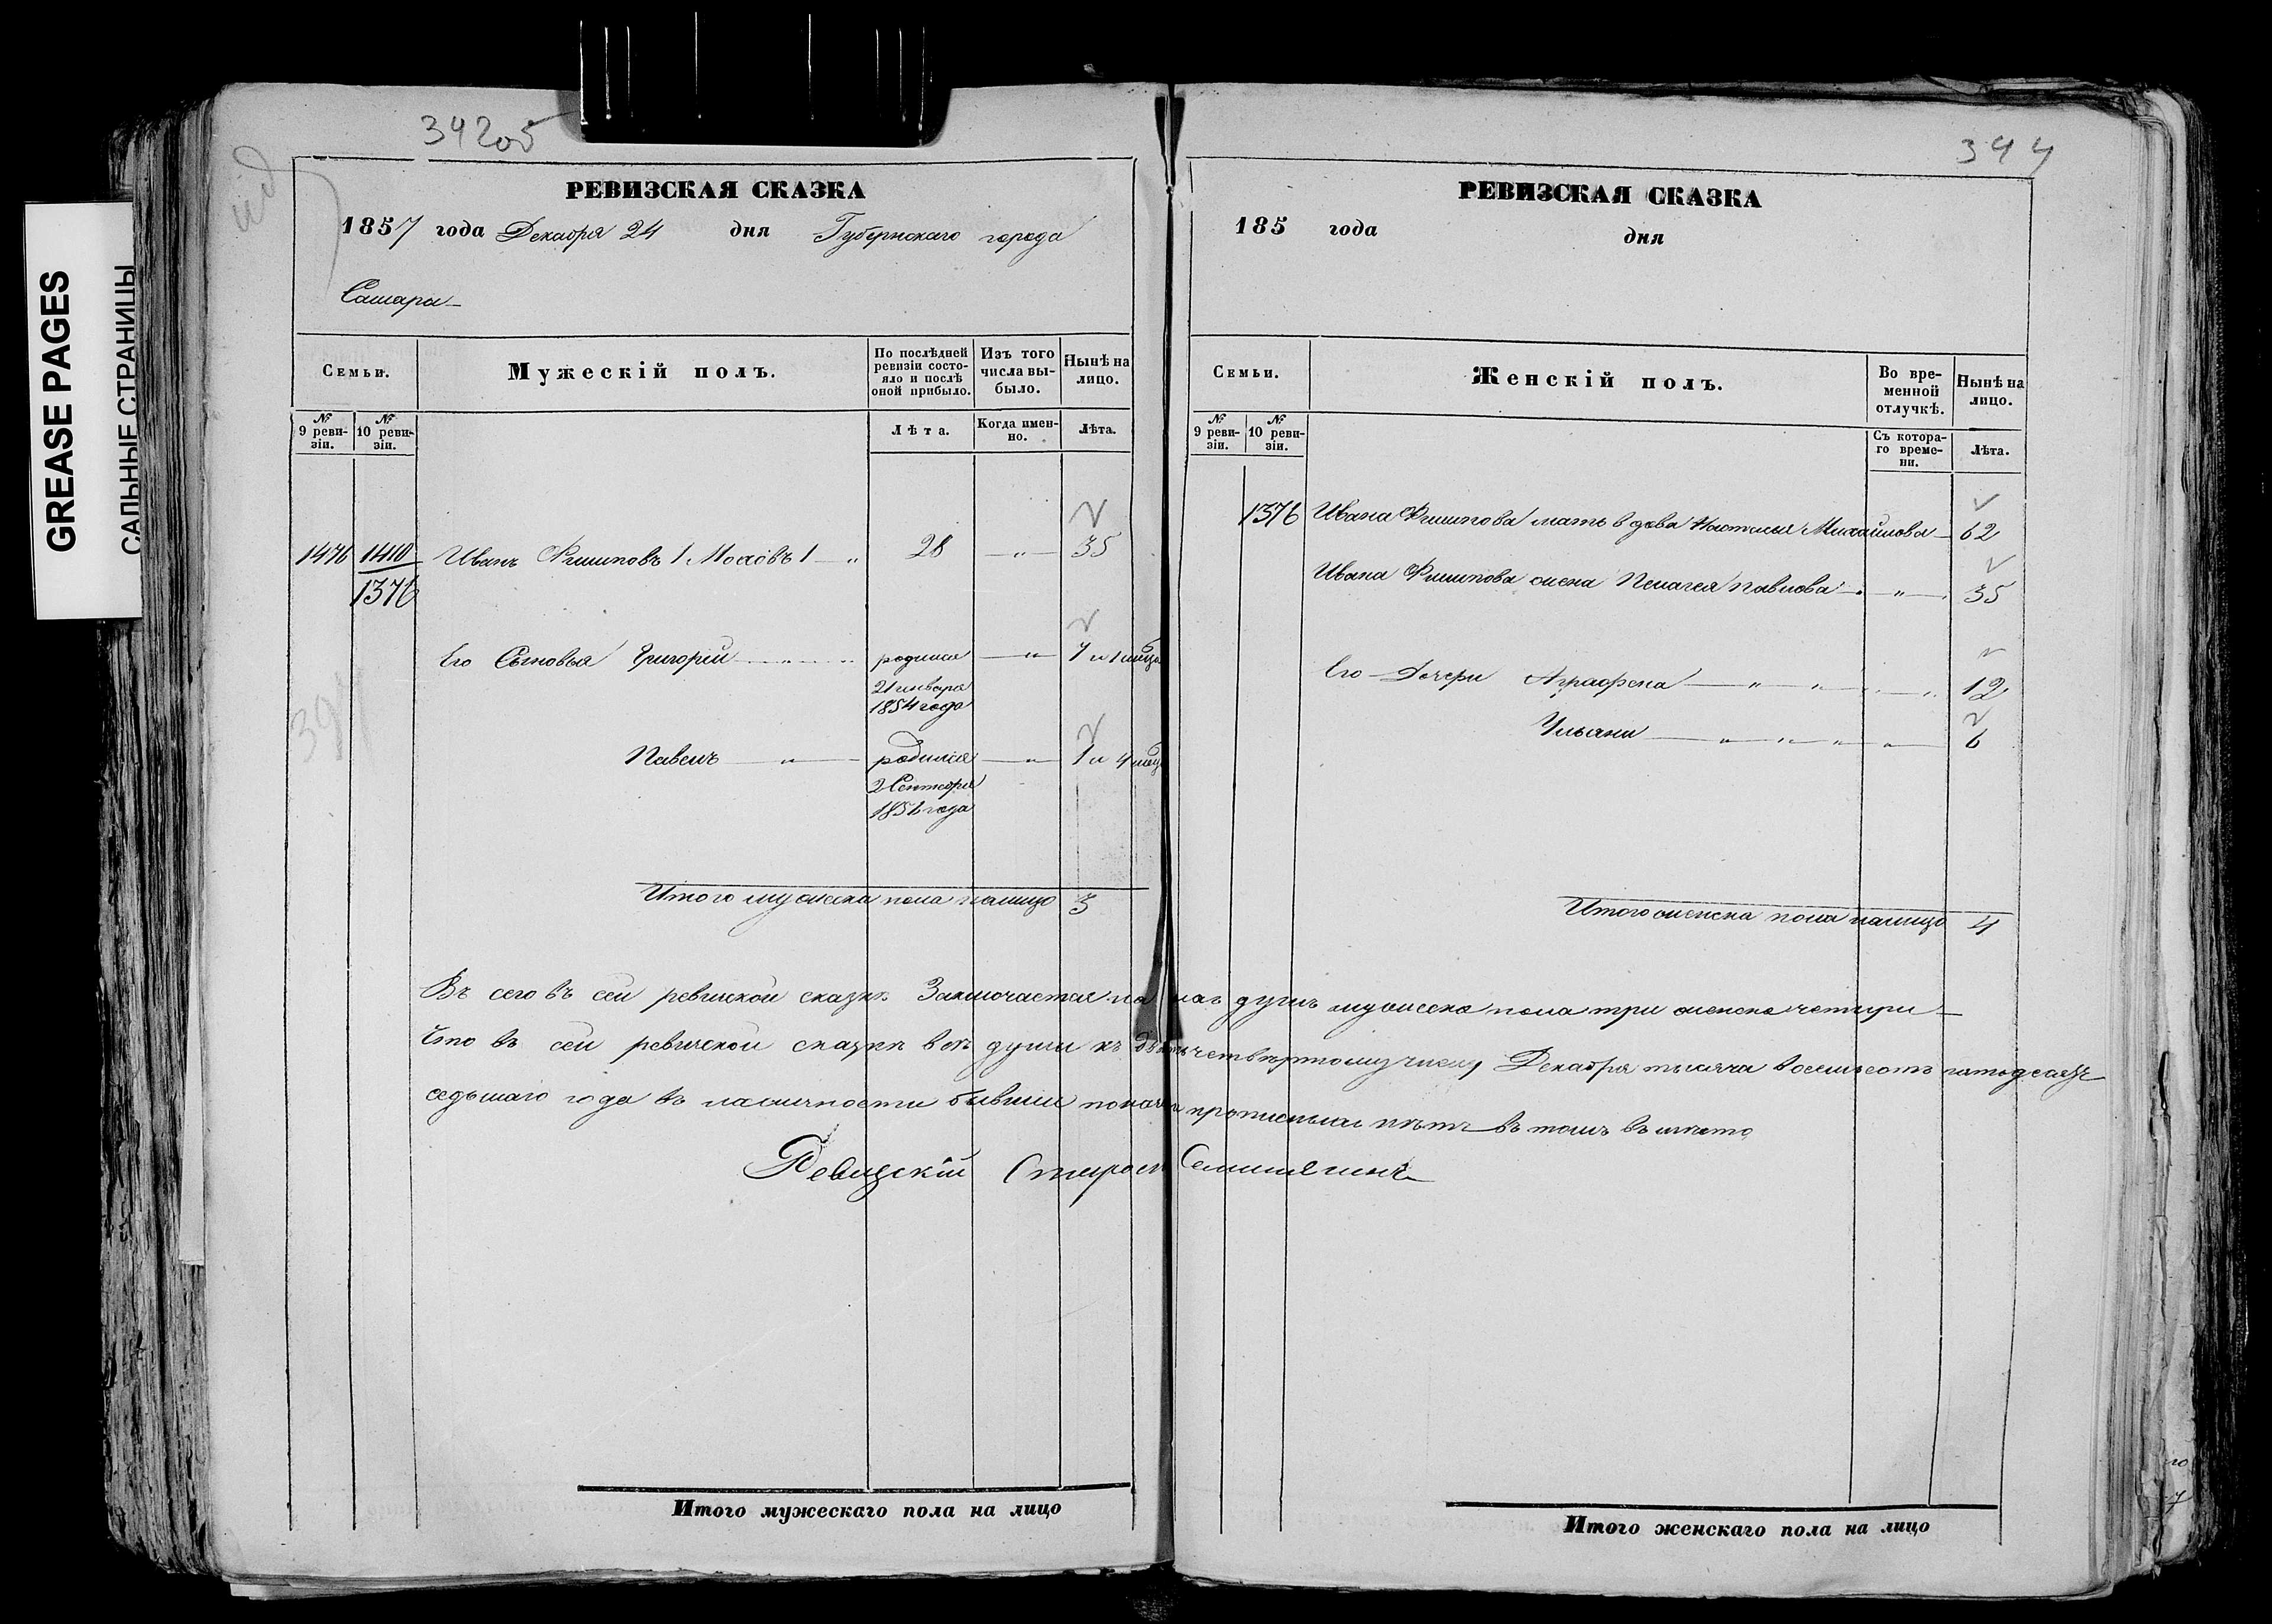 GREASE PAGES
САЛЬНЫЕ СТРАНИЦЫ
342об
РЕВИЗСКАЯ СКАЗКА
1857 года Декабря 24 дня Губернскаго города
Самары
Семьи.
Мужескій полъ.
По послѣдней ревизіи состояло и послѣ оной прибыло.
Изъ того числа выбыло.
Нынѣ на лицо.
№ 9 ревизіи.
№ 10 ревизіи.
Лѣта.
Когда именно.
Лѣта.
1476 1410 Иванъ Филиповъ 28 35
1376
Его Сыновья Григорий родился
21 января
1854 года
Павелъ родился 1 и 4
2 Сентября
1856 года
Итого мужеска пола налицо 3
344
РЕВИЗСКАЯ СКАЗКА
185 года дня
Семьи.
Женскій полъ.
Во временной отлучкѣ.
Нынѣ на лицо.
№ 9 ревизіи.
№ 10 ревизіи.
Съ котораго времени.
Лѣта.
1376 Ивана Филипова мать вдова Михайлова 62
Ивана Филипова жена Пелагея Павлова 35
Его Дочери Аграфена 12
Ульяна 6
Итого женска пола налицо 4
сего въ сей ревиской сказкѣ Заключается душъ мужеска пола три женска четыри
Что въ сей ревиской сказкѣ всѣ души къ четвертому числу Декабря тысяча восемьсотъ
седьмаго года въ наличности бывшии въ томъ
Ревизскій Старост
Итого мужескаго пола на лицо
Итого женскаго пола на лицо